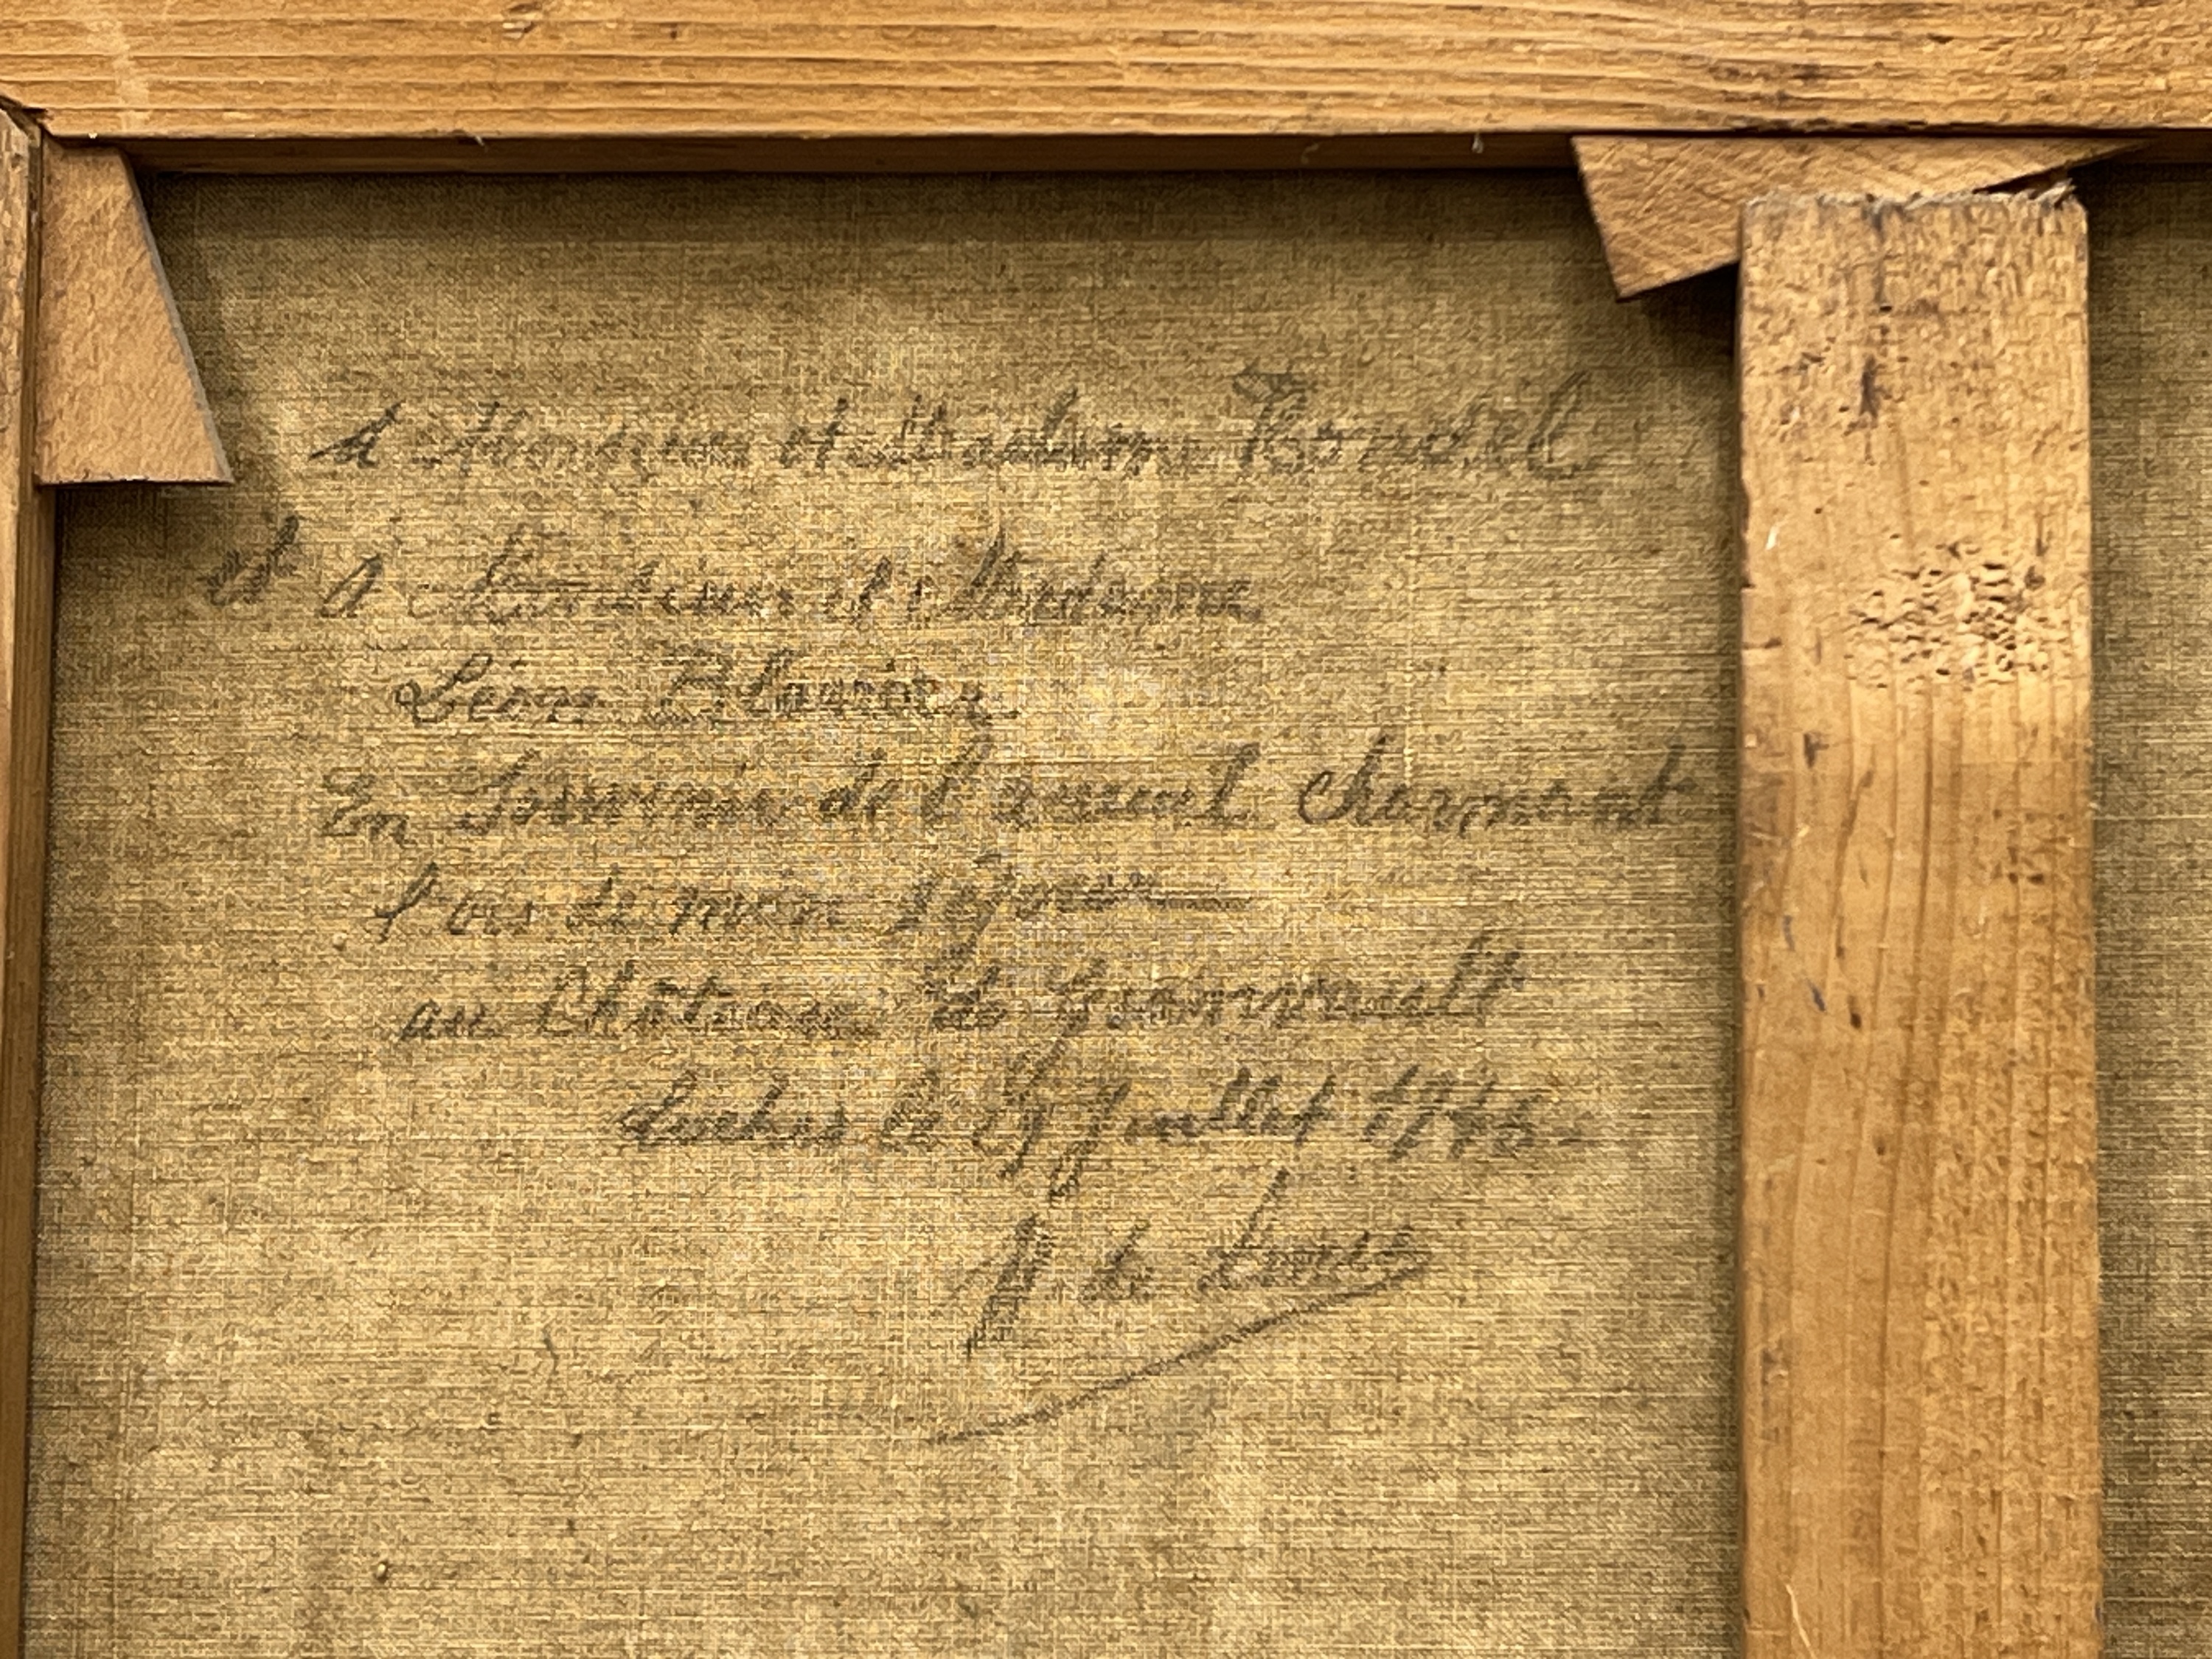 A Monsieur et Madame Rondel
et A Monsieur et Madame
Léon
En Souvenir de l'acueil Charmant
Lors de mon Séjour
au Château de
Luchet le Juillet
de